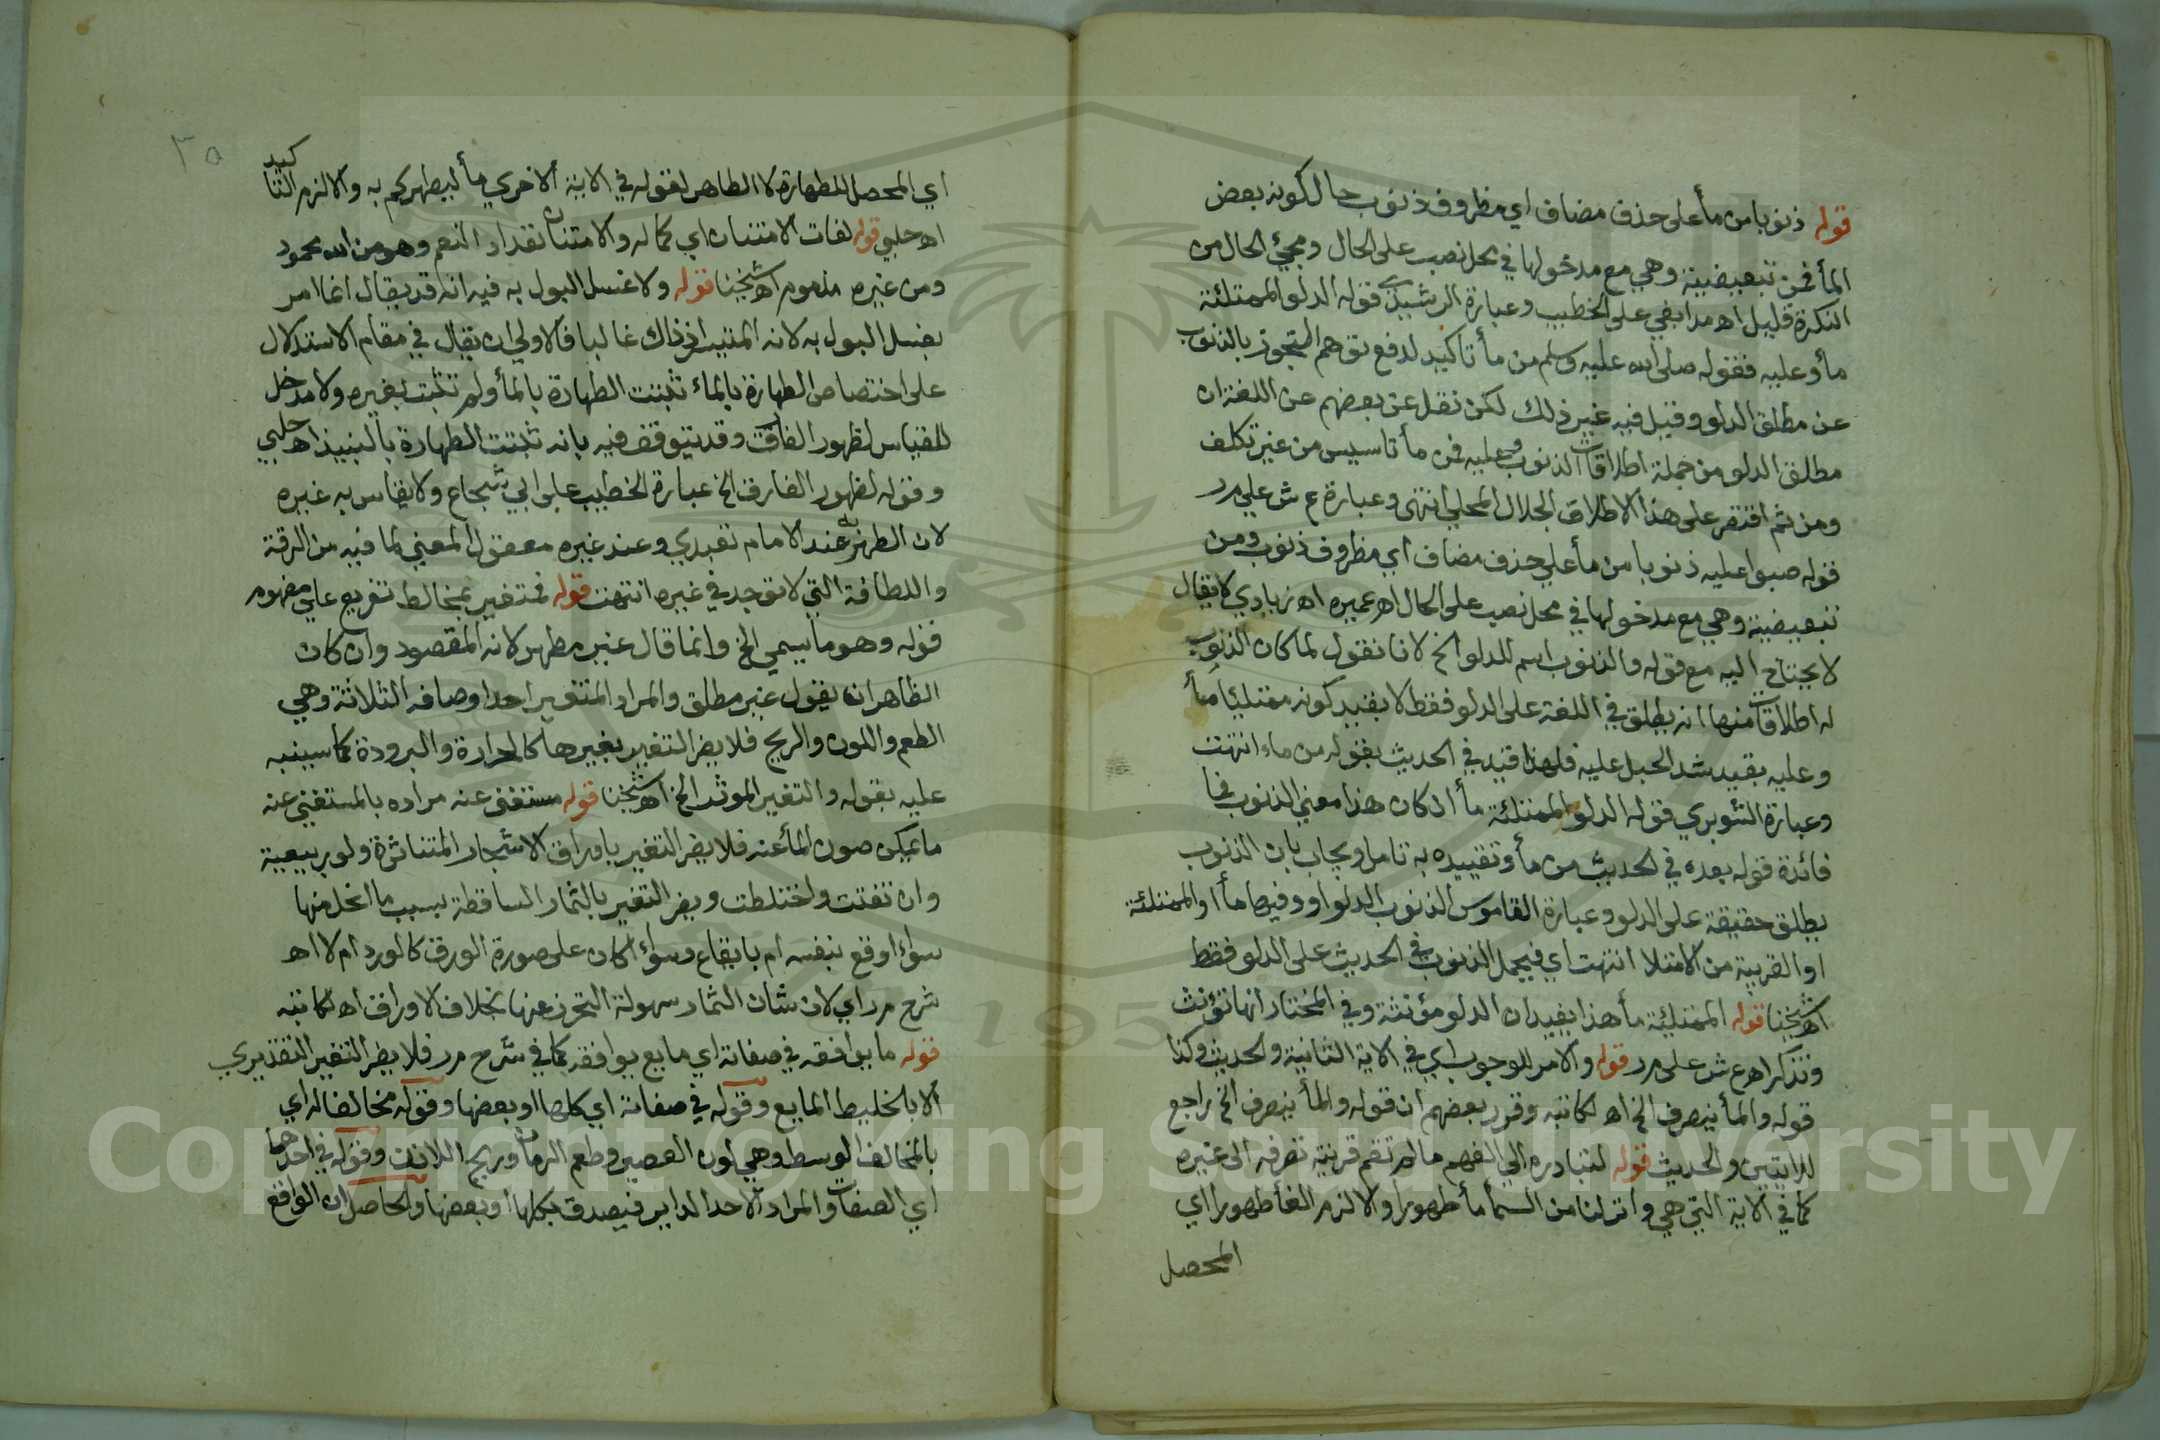 قوله ذنوبا من مأ على حذف مضاف اي مظروف ذنوب حال كونه بعض
المأ فمن تبعيضية وهي مع مدخولها في محل نصب على الحال ومجئ الحال من
النكرة قليل اه مدابغي على الخطيب وعبارة الرشيدي قوله الدلو الممتلئة
مأ وعليه فقوله صلى الله عليه وسلم من مأ تاكيد لدفع توهم التجوز بالذنوب
عن مطلق الدلو وقيل فيه غير ذلك لكن نقل عن بعضهم عن اللغة ان
مطلق الدلو من جملة اطلاقات الذنوب وعليه فمن مأ تاسيس من غير تكلف
ومن ثم اقتصر على هذا الاطلاق الجلال المحلي انتهى وعبارة ع ش على مر
قوله صبوا عليه ذنوبا من مأ على حذف مضاف اي مظروف ذنوب ومن
تبعيضية وهي مع مدخولها في محل نصب على الحال اه عميره اه زيادي لا يقال
لا يحتاج اليه مع قوله والذنوب اسم للدلو الخ لانا نقول لما كان الذنوب
له اطلاقات منها انه يطلق في اللغة على الدلو فقط لا بقيد كونه ممتلئا مأ
وعليه بقيد شد الحبل عليه فلهذا قيد في الحديث بقوله من ماء انتهت
وعبارة الشوبري قوله الدلو الممتلئة مأ ان كان هذا معنى الذنوب فما
فائدة قوله بعده في الحديث من مأ وتقييده به تامل ويجاب بان الذنوب
يطلق حقيقة على الدلو وعبارة القاموس الذنوب الدلو او وفيها مأ او الممتلئة
او القريبة من الامتلا انتهت اي فيحمل الذنوب في الحديث على الدلو فقط
اه شيخنا قوله الممتلئة مأ هذا يفيد ان الدلو مؤنثة وفي المختار انها تؤنث
وتذكر اه ع ش على مر قوله والامر للوجوب اي في الاية الثانية والحديث وكذا
قوله والمأ ينصرف الخ اه لكاتبه وقرر بعضهم ان قوله والمأ ينصرف الخ راجع
للايتين والحديث قوله لتبادره الي الفهم ما لم تقم قرينة تصرفه الى غيره
كما في الاية التي هي وانزلنا من السمأ مأ طهورا والا لزم الغأ طهورا اي
المحصل
٣٥
اي المحصل للطهارة لا الطاهر لقوله في الاية الاخري مأ ليطهركم به والا لزم التاكيد
اه حلبي قوله لفات الامتنان اي كماله والامتنان تعداد النعم وهو من الله محمود
ومن غيره مذموم اه شيخنا قوله ولا غسل البول به فيه انه قد يقال انما امر
بغسل البول به لانه المتيسر اذ ذاك غالبا فالاولى ان يقال في مقام الاستدلال
على اختصاص الطهارة بالماء ثبتت الطهارة بالمأ ولم تثبت بغيره ولا مدخل
للقياس لظهور الفارق وقد يتوقف فيه بانه ثبتت الطهارة بالنبيذ اه حلبي
وقوله لظهور الفارق الخ عبارة الخطيب على ابي شجاع ولا يقاس به غيره
لان الطهر به عند الامام تعبدي وعند غيره معقول المعني لما فيه من الرقة
واللطافة التي لا توجد في غيره انتهت قوله فمتغير بمخالط تفريع علي مفهوم
قوله وهو ما يسمي الخ وانما قال غير مطهر لانه المقصود وان كان
الظاهر ان يقول غير مطلق والمراد المتغير احد اوصافه الثلاثة وهي
الطعم واللون والريح فلا يضر التغير بغيرها كالحرارة والبرودة كما سينبه
عليه بقوله والتغير الموثر الخ اه شيخنا قوله مستغني عنه مراده بالمستغني عنه
ما يمكن صون المأ عنه فلا يضر التغير باوراق الاشجار المتناثرة ولو ربيعية
وان تفتت واختلطت ويضر التغير بالثمار الساقطة بسبب ما انحل منها
سواء اوقع بنفسه ام بايقاع وسواء اكان على صورة الورق كالورد ام لا اه
شرح مر اي لان شان الثمار سهولة التحرز عنها بخلاف الاوراق اه لكاتبه
قوله ما يوافقه في صفاته اي مايع يوافقه كما في شرح مر فلا يضر التغير التقديري
الا بالخليط المايع وقوله في صفاته اي كلها او بعضها وقوله مخالفا له اي
بالمخالف الوسط وهي لون العصير وطعم الرمان وريح اللاذن وقوله في احدها
اي الصفات والمراد الاحد الداير فيصدق بكلها او بعضها والحاصل ان الواقع
Copyright © King Saud University
195